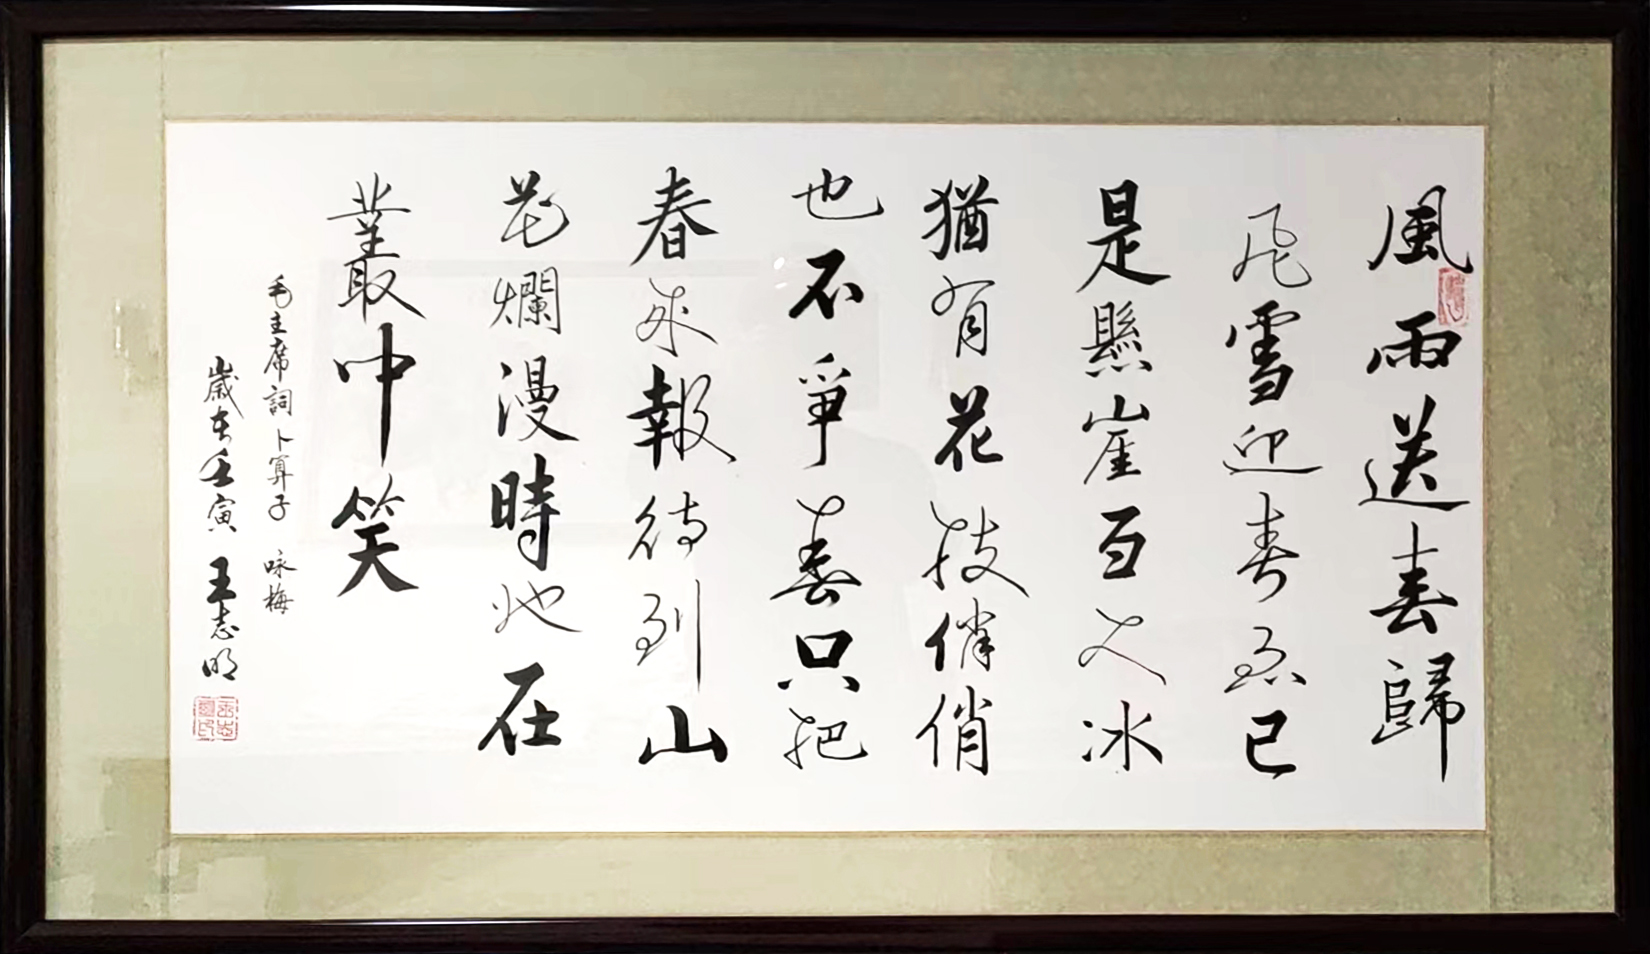 風雨送春歸
飛雪迎春到已
是懸崖百丈冰
猶有花枝俏俏
也不爭春只把
春來報待到山
花爛漫時她在
叢中笑
毛主席詞卜算子 咏梅
歲在壬寅 王志明